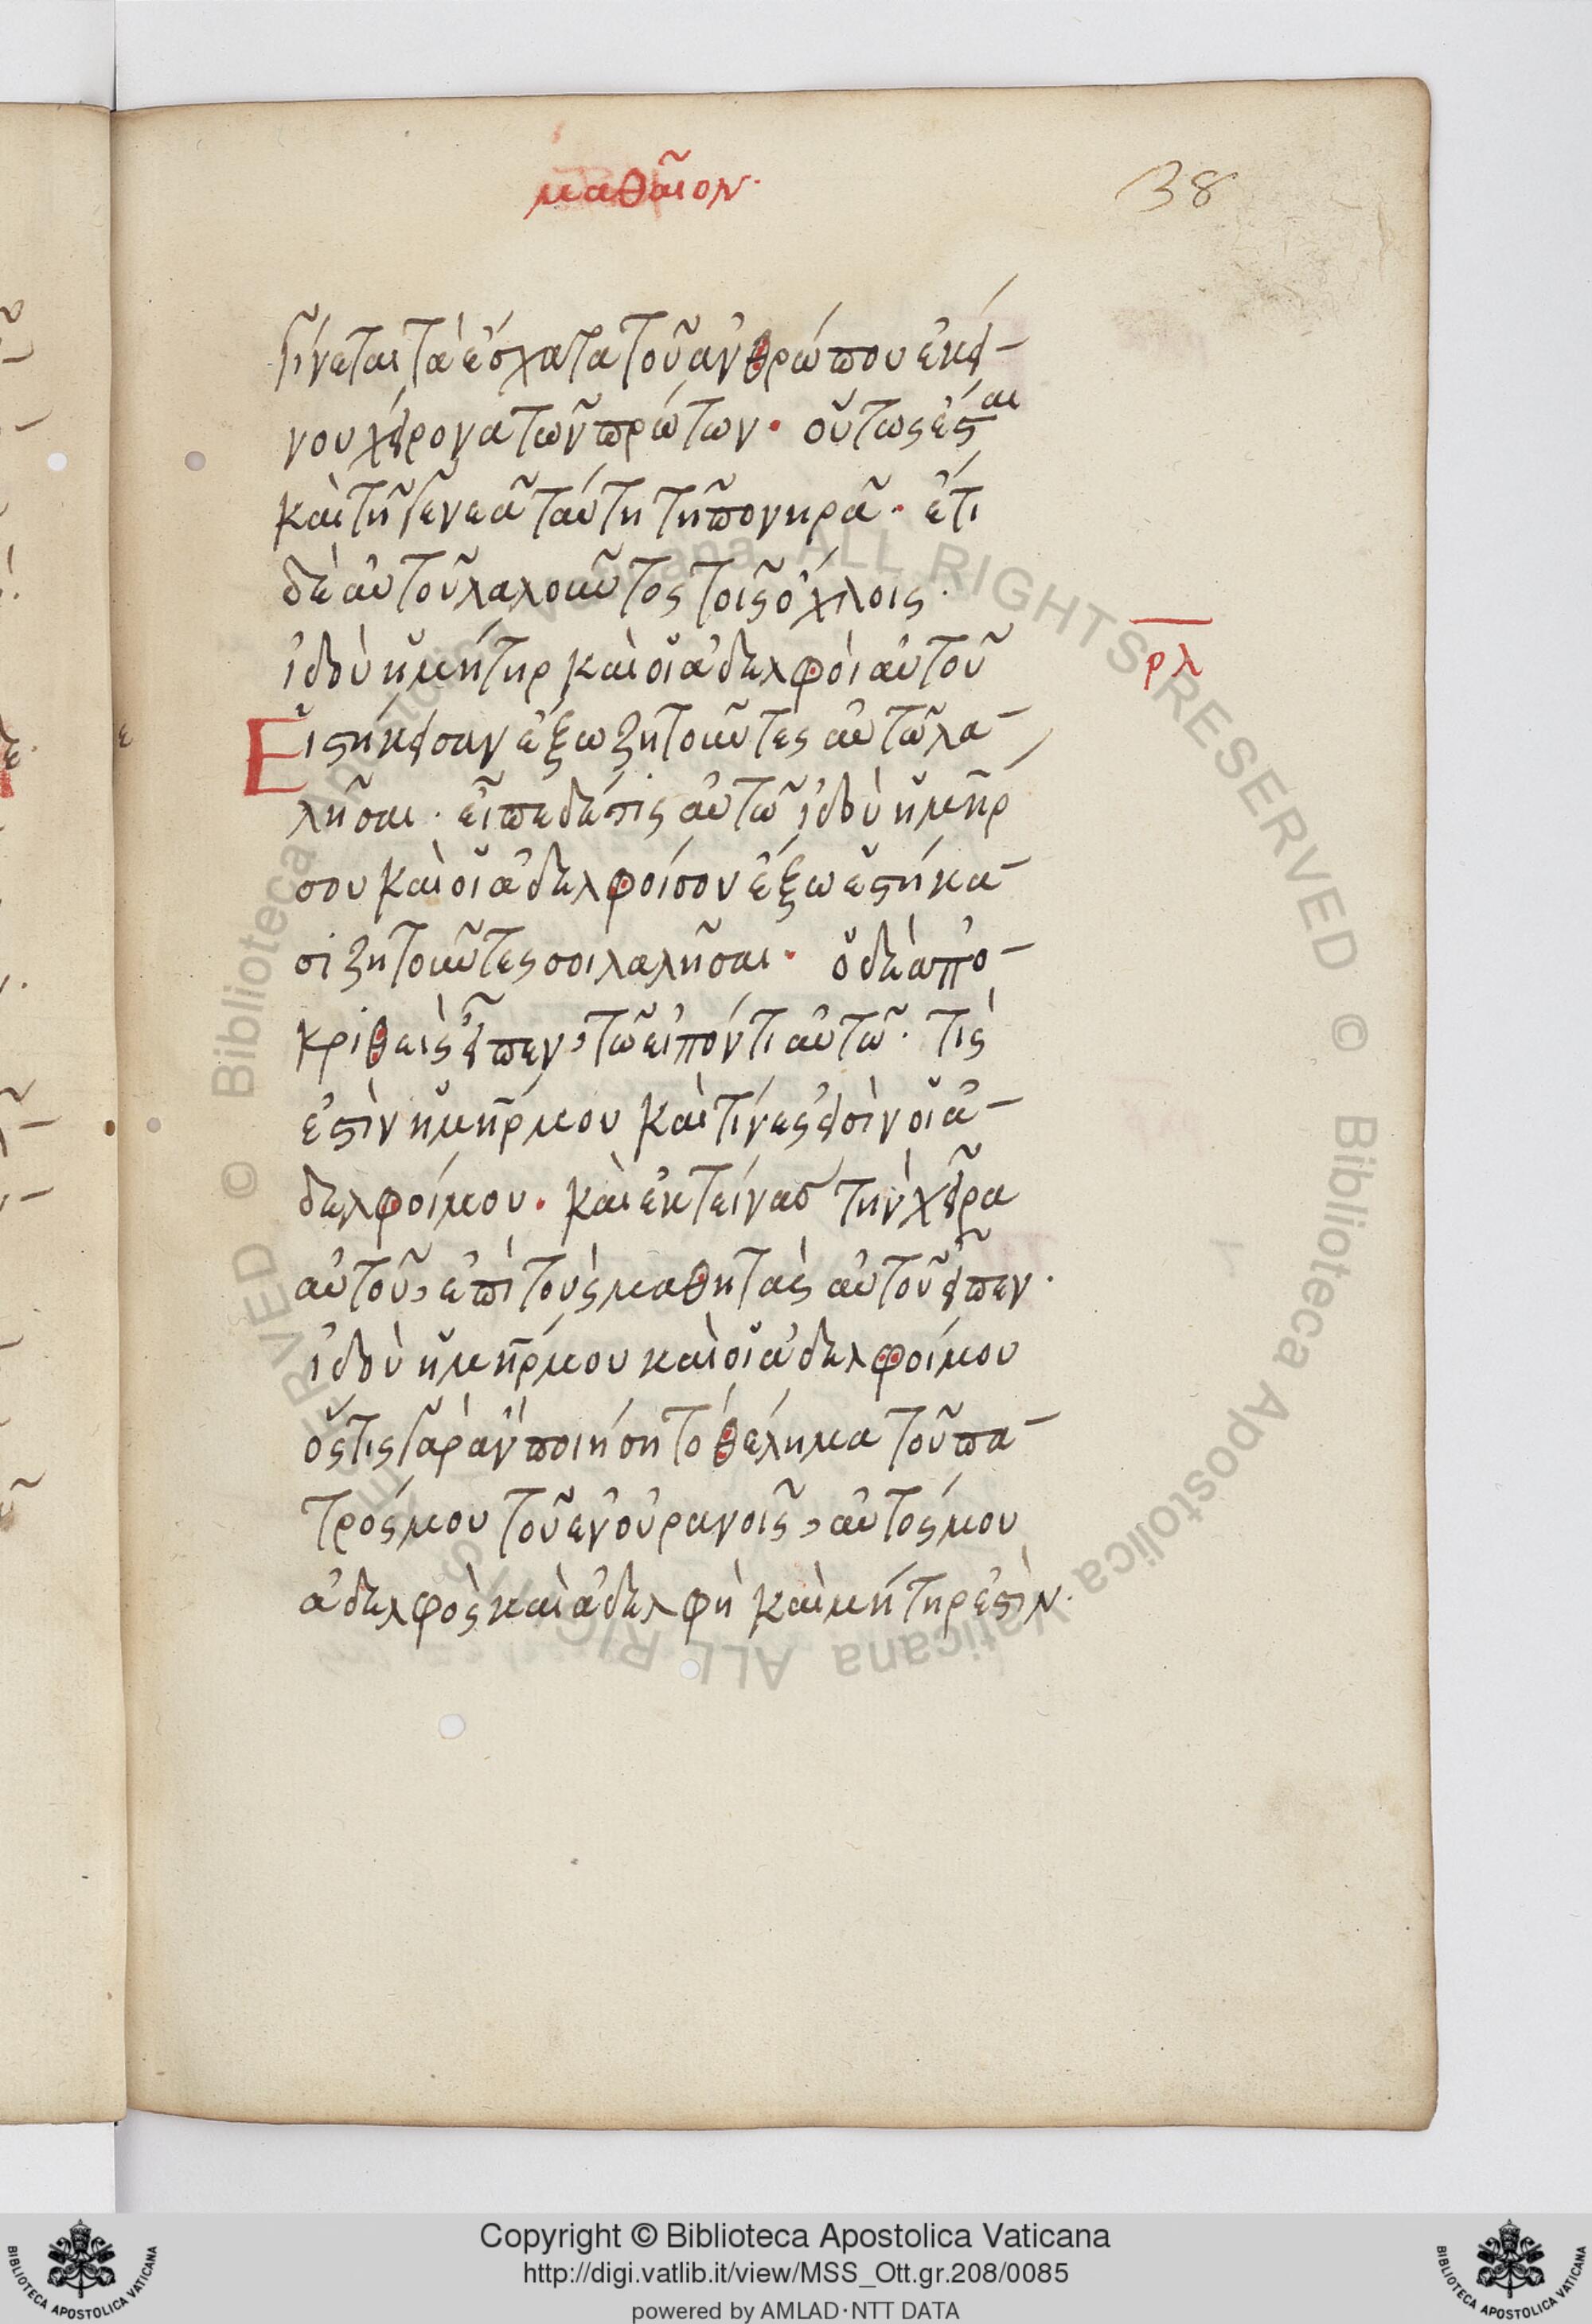 μαθαῖον·
38
γίνεται τὰ ἔσχατα τοῦ ἀνθρώπου ἐκεί-
νου χείρονα τῶν πρώτων· οὕτως ἔσται
καὶ τῆ γενεᾶ ταύτη τῆ πονηρᾶ· ἔτι
δὲ αὐτοῦ λαλοῦντος τοῖς ὄχλοις·
ἰδοὺ ἡ μήτηρ καὶ οἱ ἀδελφοὶ αὐτοῦ
ρλ
Εἱστήκεισαν ἔξω ζητοῦντες αὐτῶ λα-
λῆσαι· εἶπε δέ τις αὐτῶ ἰδοὺ ἡ μηρ
σου καὶ οἱ ἀδελφοί σου ἔξω ἑστήκα-
σι ζητοῦντες σοι λαλῆσαι· ὁ δὲ ἀπο-
κριθεὶς εἶπεν, τῶ εἰπόντι αὐτῶ· τίς
ἐστὶν ἡ μηρ μου καὶ τίνες εἰσὶν οἱ ἀ-
δελφοί μου· καὶ ἐκτείνας τὴν χεῖρα
αὐτοῦ, ἐπὶ τοὺς μαθητὰς αὐτοῦ εἶπεν·
ἰδοὺ ἡ μηρ μου καὶ οἱ ἀδελφοί μου
ὅστις γὰρ ἂν ποιήση τὸ θέλημα τοῦ πα-
τρός μου τοῦ ἐν οὐρανοῖς, αὐτός μου
ἀδελφὸς καὶ ἀδελφὴ καὶ μήτηρ ἐστὶν·
Copyright © Biblioteca Apostolica Vaticana
http://digi.vatlib.it/view/MSS_Ott.gr.208/0085
powered by AMLAD·NTT DATA